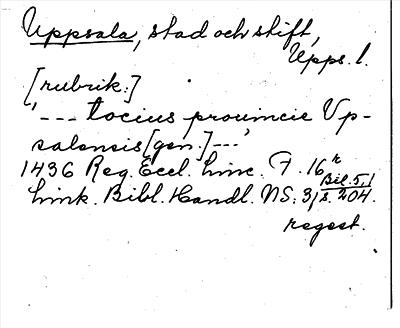 Uppsala, stad och stift,
Upps. l.
[rubrik:]
'--- tocius prouincie Vp-
salensis [gen.] ---'
1436 Reg. Eccl. Linc. F. 16 r
Link. Bibl. Handl. NS. 3, Bil. 5, 1
s. 204.
regest.